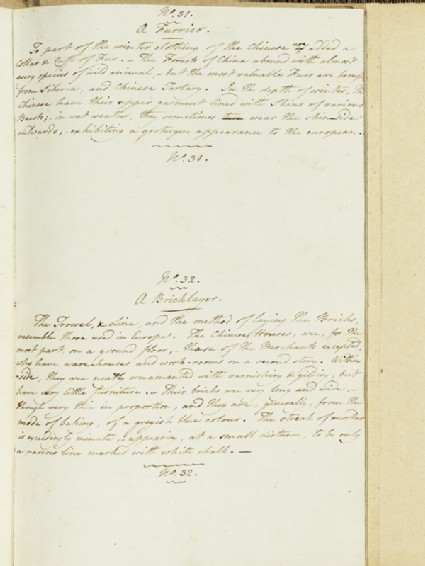 No. 31.
A Furrier.
To part of the winter clothing of the Chinese is added a
Collar & Cuffs of Fur. — The Forests of China abound with almost
every species of wild animal, — but the most valuable Furs are brought
from Siberia, and Chinese Tartary. — In the depth of winter, the
Chinese have their upper garment lined with Skins of various
Beasts; in wet weather, they sometimes wear the skin-side
outwards, exhibiting a grotesque appearance to the european. —
No. 31.
No. 32.
A Bricklayer.
The Trowel, & Line, and the method of laying the Bricks,
resemble those used in Europe. The Chinese Houses, are, for the
most part, on a ground floor, — those of the Merchants excepted,
who have warehouses and work-rooms on a second story. Within
side, they are neatly ornamented with varnishing & gilding, but
have very little furniture. — Their bricks are very long and wide, —
though very thin in proportion, and they are, generally, from the
mode of baking, of a greyish blue colour. The streak of mortar
is exceedingly minute, & appears, at a small distance, to be only
a narrow line marked with white chalk. —
No. 32.